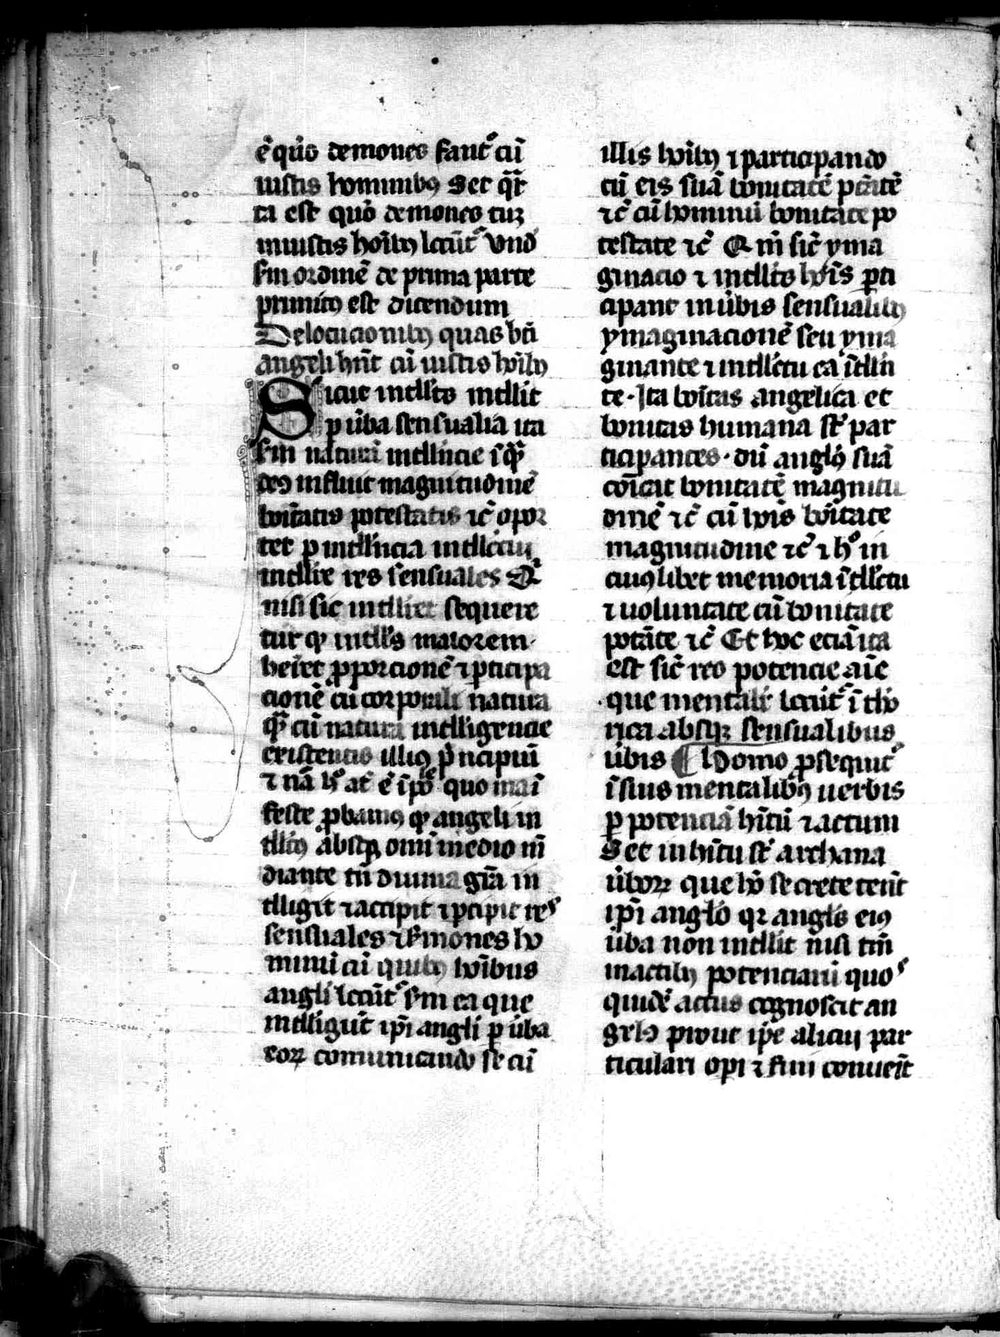 ē quō demones faūt cū
iustis hominibꝯ Sec̄ q̄r
ta est quō demones cuꝫ
iniustis hoībꝯ locūt͛ Vnd̄
scm̄ ordinē de prima parte
primitꝯ est dicendum
De locucionibꝯ quas bn̄i
angeli hn̄t cū iustis hoībꝯ
Sicut intllt̄s intllit
p̱ ūba sensualia ita
scm̄ naturā intllīncie ī q̄
deꝯ influit magnitudinē
boītatis potestatis ⁊c̄ opor
tet p̱ intll̄ncia intllectū
intllīre res sensuales Q
nisi sic intlliret sequere
tur ꝙ intllt̄s maiorem
heret p̱porcionē ⁊ p̱ticipa
cionē cū corporali natura
q̄ cū natura intelligencie
existentis illiꝯ p̄ncipiū
⁊ nā hͦ aū ē īpō quo mai
feste ꝓbamꝯ ꝙ angeli in
tllītꝯ absqꝫ omī medio m̄
diante tn̄ diuina grā in
telligit ⁊ accipit ⁊ p̱cipit res
sensuales ⁊ s̄mones ho
minū cū quibꝯ hoībus
angli locūt͛ scm̄ ea que
intelligūt ip̄i angli p̱ ūba
eoꝝ comunicando se cū
illis hoībꝯ ⁊ participando
cū eis suā bonitatē ptātē
⁊c̄ cū hominū bonitate po
testate ⁊c̄ Q m̄ sic̄ yma
ginacio ⁊ intllt̄s hoīs p̱ti
cipant in ūbis sensualibꝯ
ymaginacionē seu yma
ginante ⁊ intllc̄tu ea ītllīn
te · Ita boītas angelica et
bonitas humana sī̄t par
ticipantes · dū anglꝯ suā
cōīcat bonitatē magnitu
dinē ⁊c̄ cū hoīs boītate
magnitudine ⁊c̄ ⁊ hͦ in
cuiꝯlibet memoria ītllc̄tu
⁊ uoluntate cū bonitate
potāte ⁊c̄ Et hoc eciā ita
est sic̄ res potencie aīe
que mentalr̄ locūt͛ ī tho
rica absqꝫ sensualibus
ūbis ¶ Homo p̱sequit͛
ī suis mentalibꝯ uerbis
p̱ potenciā hītū ⁊ actum
Set in hītu sī̄t archana
ūboꝝ que hō secrete tenēt
ip̄i anglō qꝛ anglꝯ eiꝯ
ūba non intllīt nisi tm̄
in actibꝯ potenciarū quos
quidē actus cognoscit an
gelꝯ prout ip̄e alicui par
ticulari operi ⁊ fini conueīt